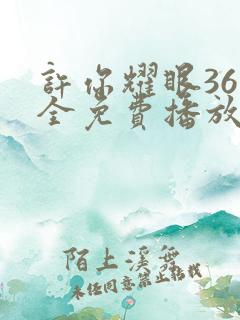 許你耀眼36
全免費播放
陌上溪舞
未经同意禁止搭載